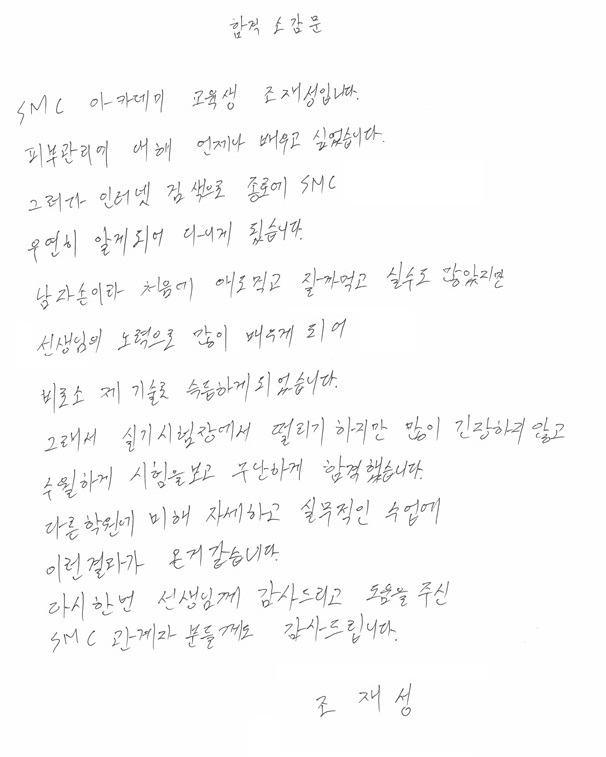 합격 소감문
SMC 아카데미 교육생 조재성입니다.
피부관리에 대해 언제나 배우고 싶었습니다.
그러다 인터넷 검색으로 종로에 SMC
우연히 알게되어 다니게 됬습니다.
남자손이라 처음에 애도먹고 잘까먹고 실수도 많았지만
선생님의 노력으로 많이 배우게 되어
비로소 제 기술로 습득하게되었습니다.
그래서 실기시험장에서 떨리기 하지만 많이 긴장하지 않고
수월하게 시험을보고 무난하게 합격했습니다.
다른학원에 비해 자세하고 실무적인 수업에
이런결과가 온거같습니다.
다시한번 선생님께 감사드리고 도움을 주신
SMC 관계자 분들께도 감사드립니다.
조재성